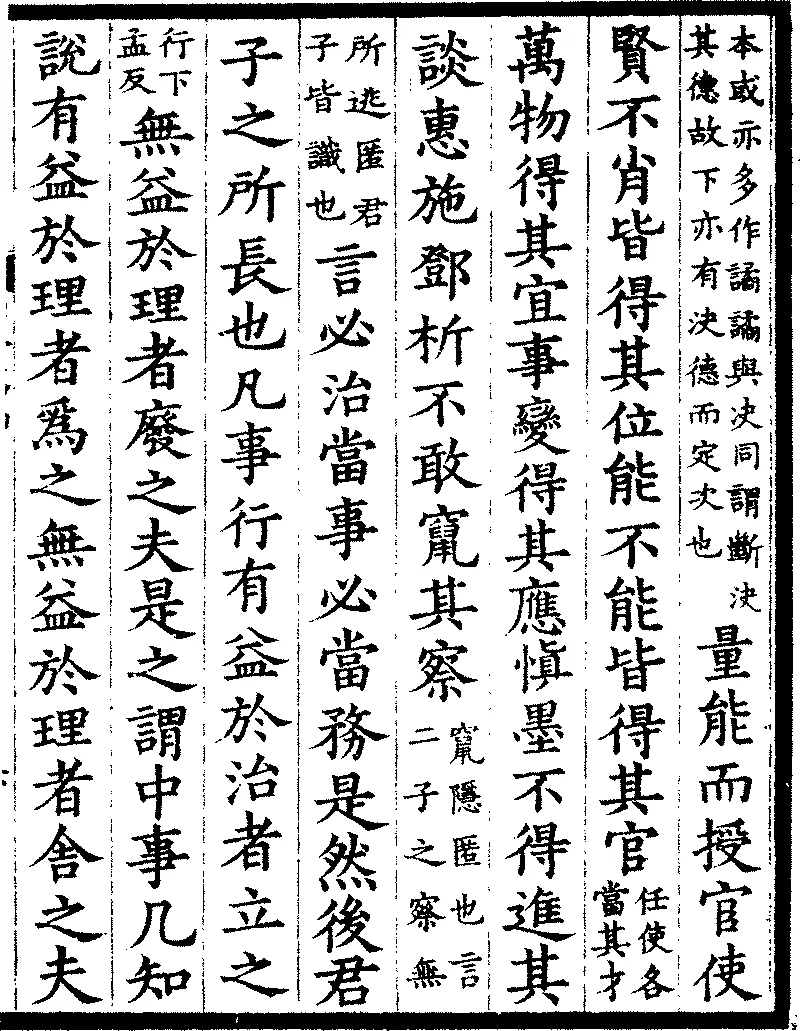 本或亦多作譎譎與决同謂斷决其德故下亦有决德而定次也量能而授官使
賢不肖皆得其位能不能皆得其官任使各當其才
萬物得其宜事變得其應慎墨不得進其
談惠施鄧析不敢竄其察竄隱匿也言二子之察無
所逃匿君子皆識也言必治當事必當務是然後君
子之所長也凡事行有益於治者立之
行下孟反無益於理者廢之夫是之謂中事凡知
說有益於理者爲之無益於理者舍之夫